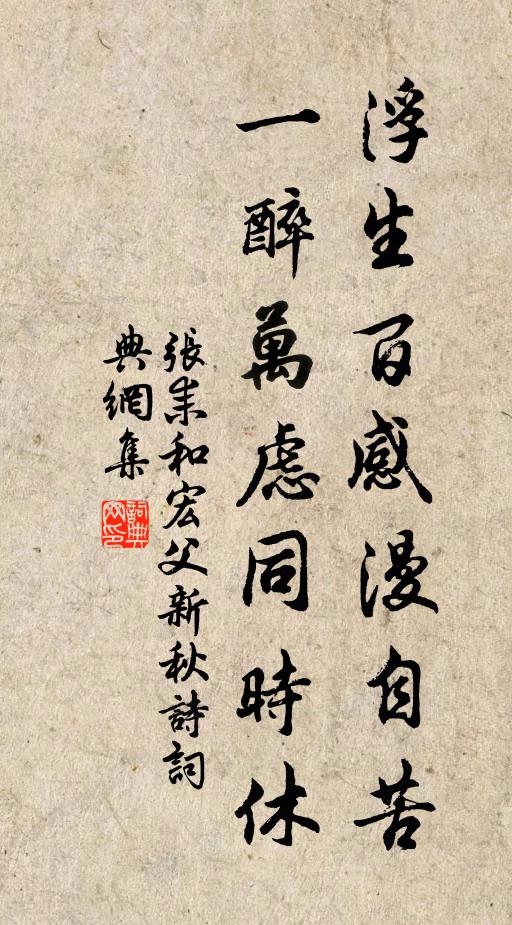 浮生百感漫自苦
一醉萬慮同時休
張耒和宏父新秋詩詞
典網集
詞典
网印